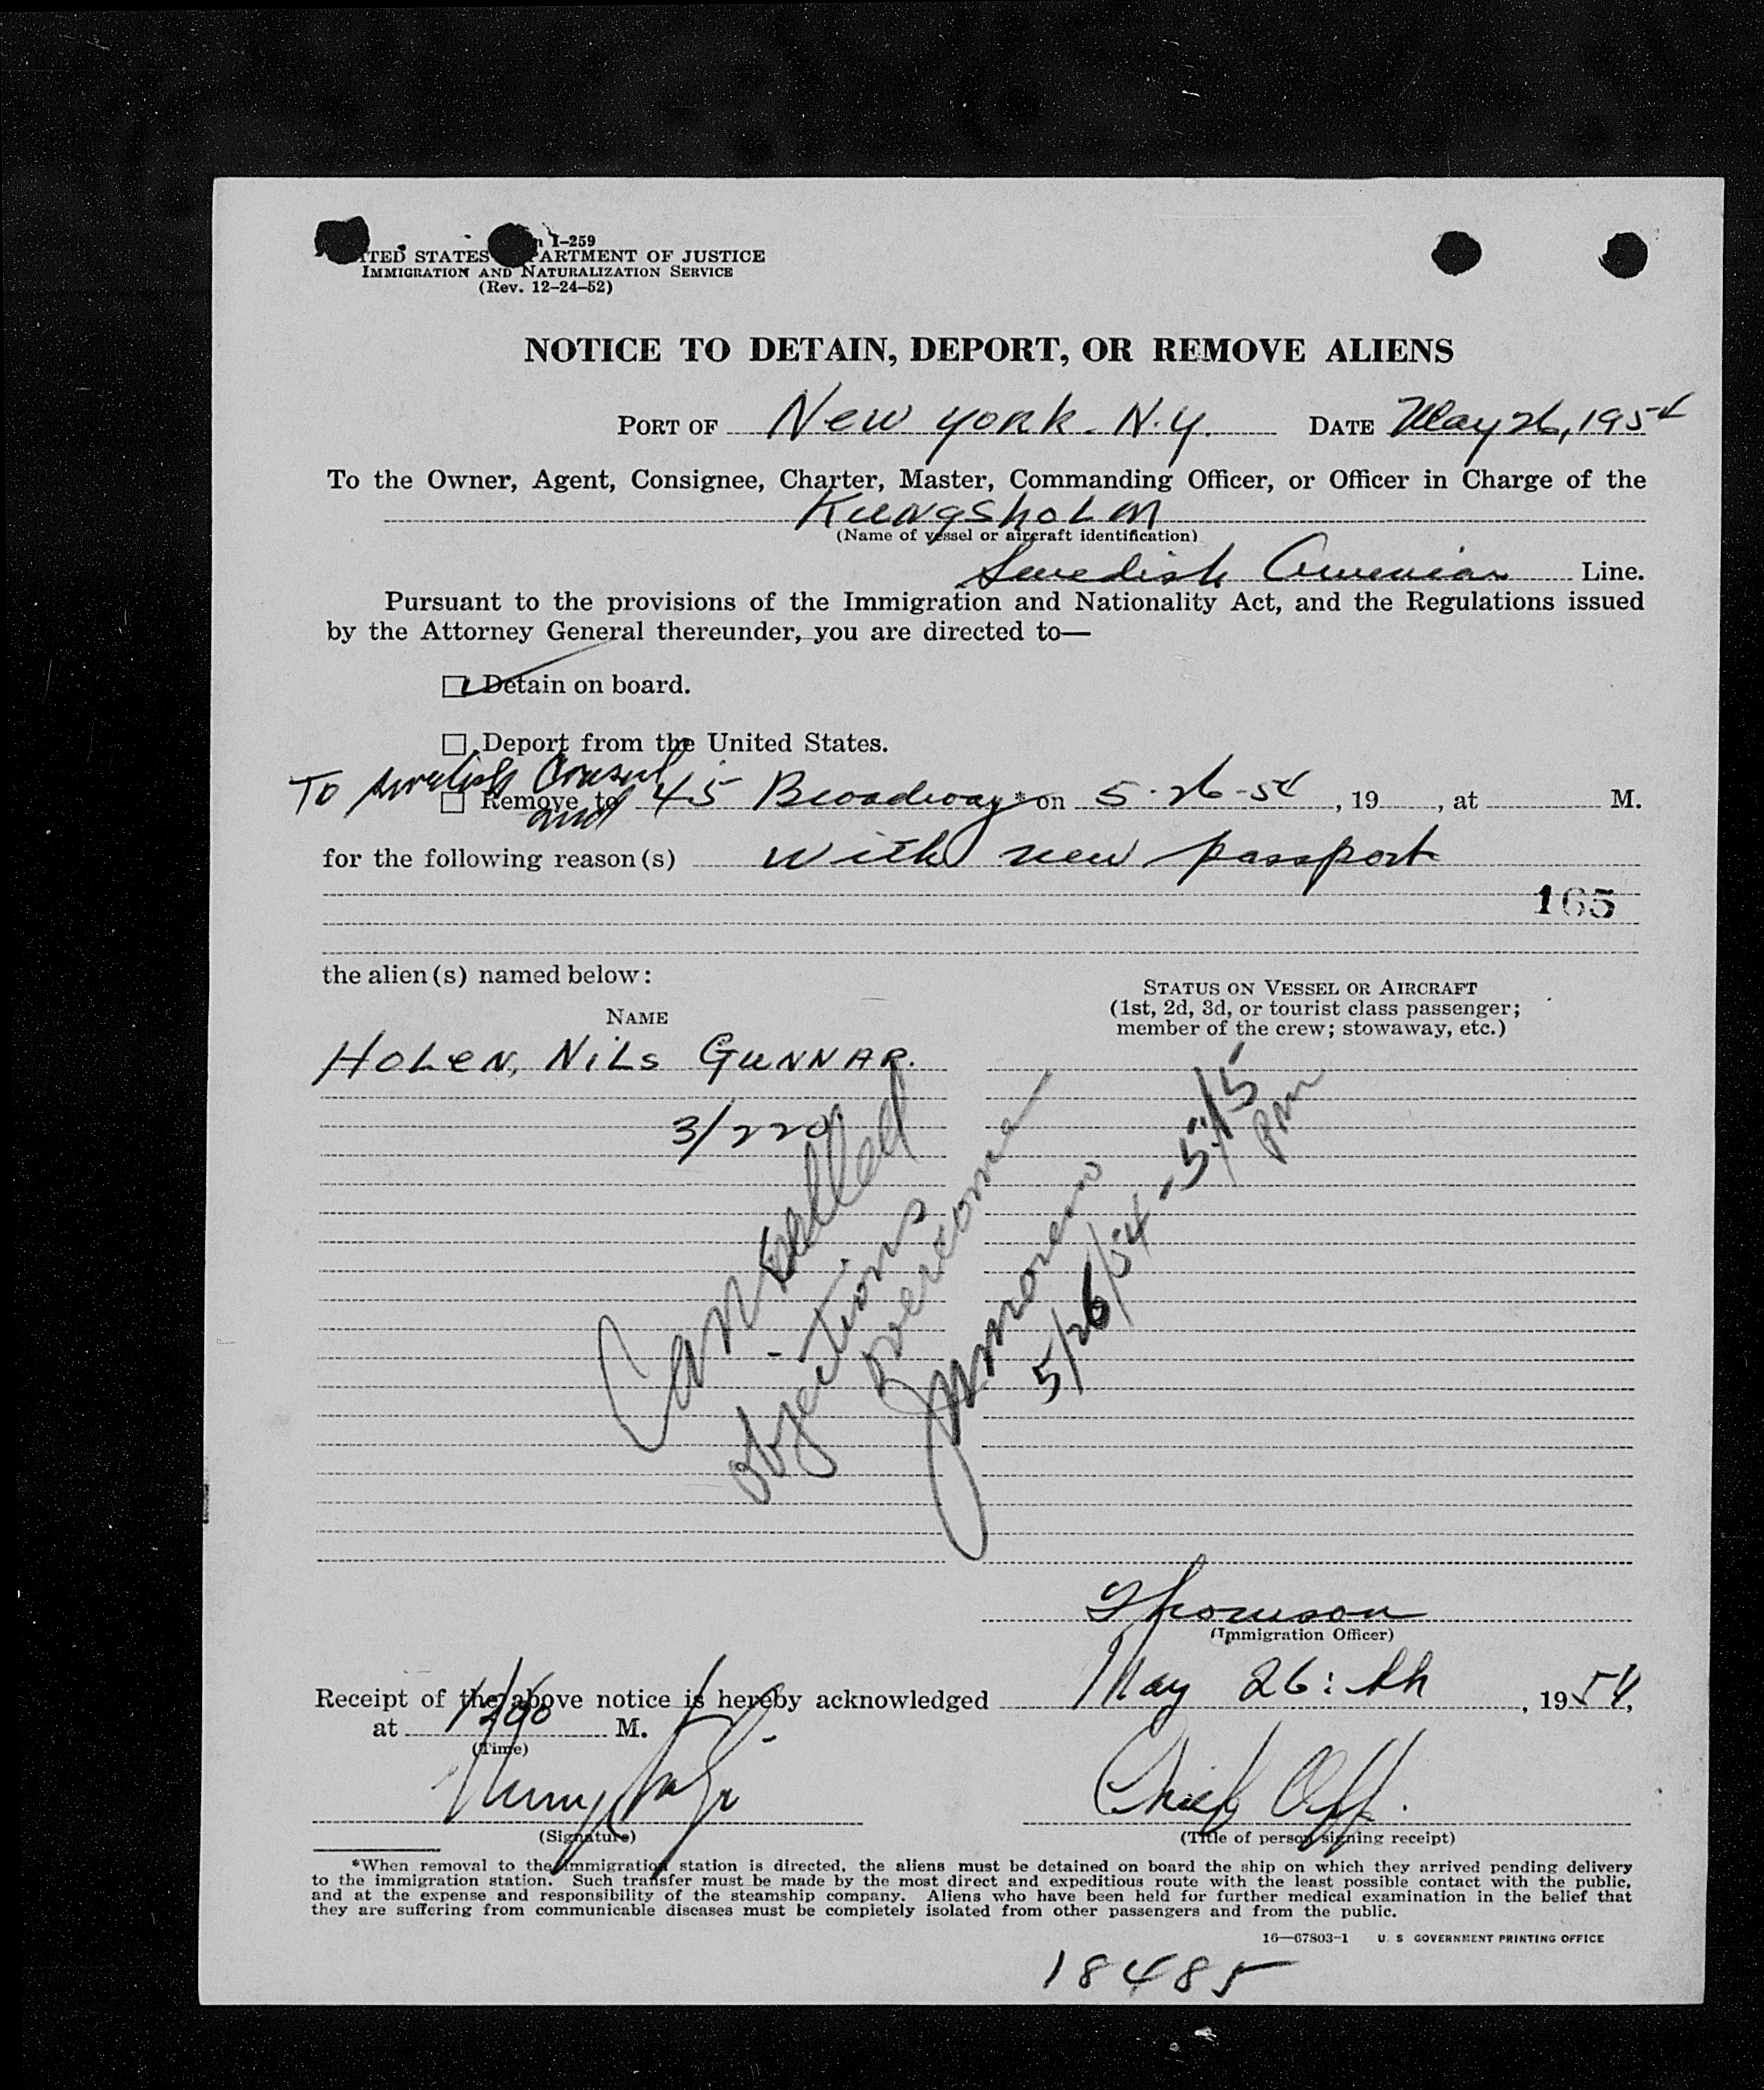 I-259
UNITED STATES DEPARTMENT OF JUSTICE
IMMIGRATION AND NATURALIZATION SERVICE
(Rev. 12-24-52)
NOTICE TO DETAIN, DEPORT, OR REMOVE ALIENS
PORT OF New York. N.Y. DATE May 26, 1954
To the Owner, Agent, Consignee, Charter, Master, Commanding Officer, or Officer in Charge of the
Kungsholm
(Name of vessel or aircraft identification)
Swedish American Line.
Pursuant to the provisions of the Immigration and Nationality Act, and the Regulations issued
by the Attorney General thereunder, you are directed to—
Detain on board.
Deport from the United States.
To Swedish Consul
Remove to 45 Broadway* on 5-26-54, 19, at M.
and
for the following reason(s) with new passport
165
the alien(s) named below:
STATUS ON VESSEL OR AIRCRAFT
(1st, 2d, 3d, or tourist class passenger;
member of the crew; stowaway, etc.)
NAME
HOLEN, NILS GUNNAR.
3/220
Cancelled
objections
overcome
5/26/54 - 5:15
pm
Thomson
(Immigration Officer)
Receipt of the above notice is hereby acknowledged May 26:th, 1954,
at M.
(Time)
Chief Off.
(Signature)
(Title of person signing receipt)
*When removal to the immigration station is directed, the aliens must be detained on board the ship on which they arrived pending delivery
to the immigration station. Such transfer must be made by the most direct and expeditious route with the least possible contact with the public,
and at the expense and responsibility of the steamship company. Aliens who have been held for further medical examination in the belief that
they are suffering from communicable diseases must be completely isolated from other passengers and from the public.
16—67803-1 U. S GOVERNMENT PRINTING OFFICE
18485